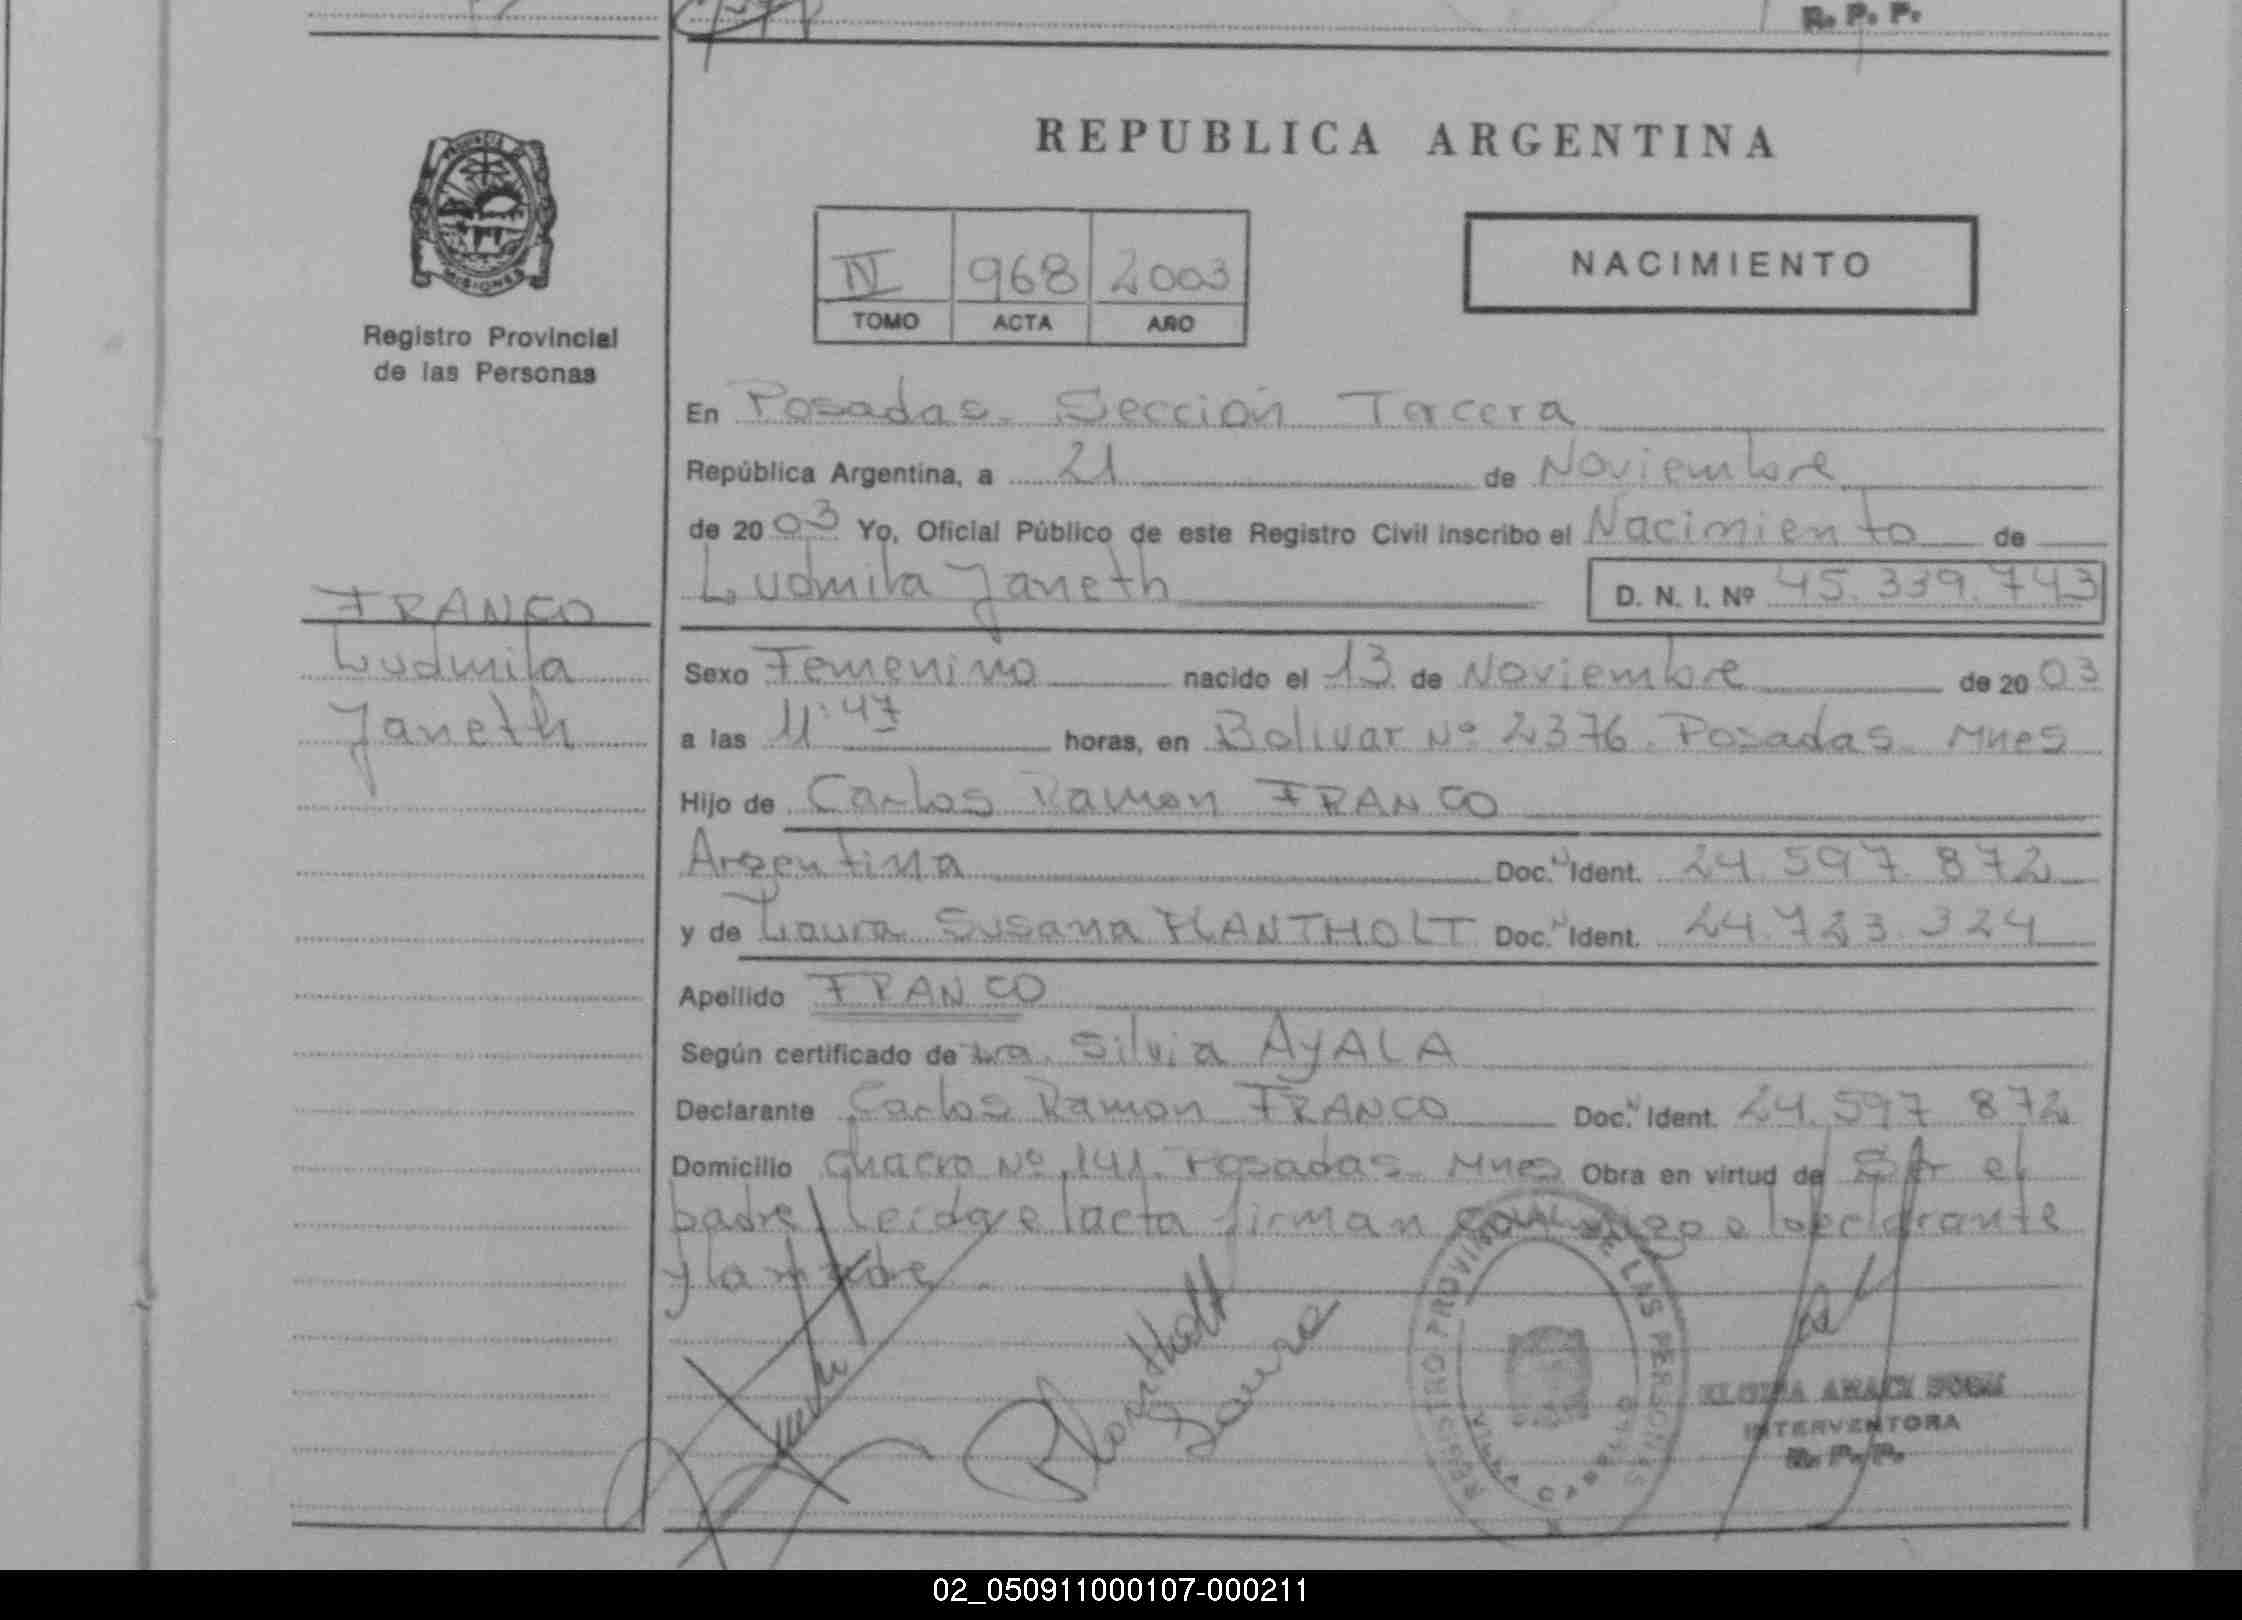 R. P. P.
PROVINCIA DE
MISIONES
Registro Provincial
de las Personas
REPUBLICA ARGENTINA
IV 968 2003
TOMO ACTA AÑO
NACIMIENTO
En Posadas. Sección Tercera
República Argentina, a 21 de Noviembre
de 2003 Yo, Oficial Público de este Registro Civil inscribo el Nacimiento de
Ludmila Janeth D. N. I. Nº 45.339.743
FRANCO
Ludmila
Janeth
Sexo Femenino nacido el 13 de Noviembre de 2003
a las 11:47 horas, en Bolivar Nº 2376. Posadas. Mnes
Hijo de Carlos Ramon FRANCO
Argentina Doc. Ident. 24.597.872
y de Laura Susana PLANTHOLT Doc. Ident. 24.723.324
Apellido FRANCO
Según certificado de Silvia AYALA
Declarante Carlos Ramon FRANCO Doc. Ident. 24.597 872
Domicilio Chacra Nº 141. Posadas. Mnes Obra en virtud de Ser el
padre, Leida el acta firman conmigo el declarante
y la madre
Plantholt
Laura
REGISTRO PROVINCIAL DE LAS PERSONAS
INTERVENTORA
R. P. P.
02_050911000107-000211